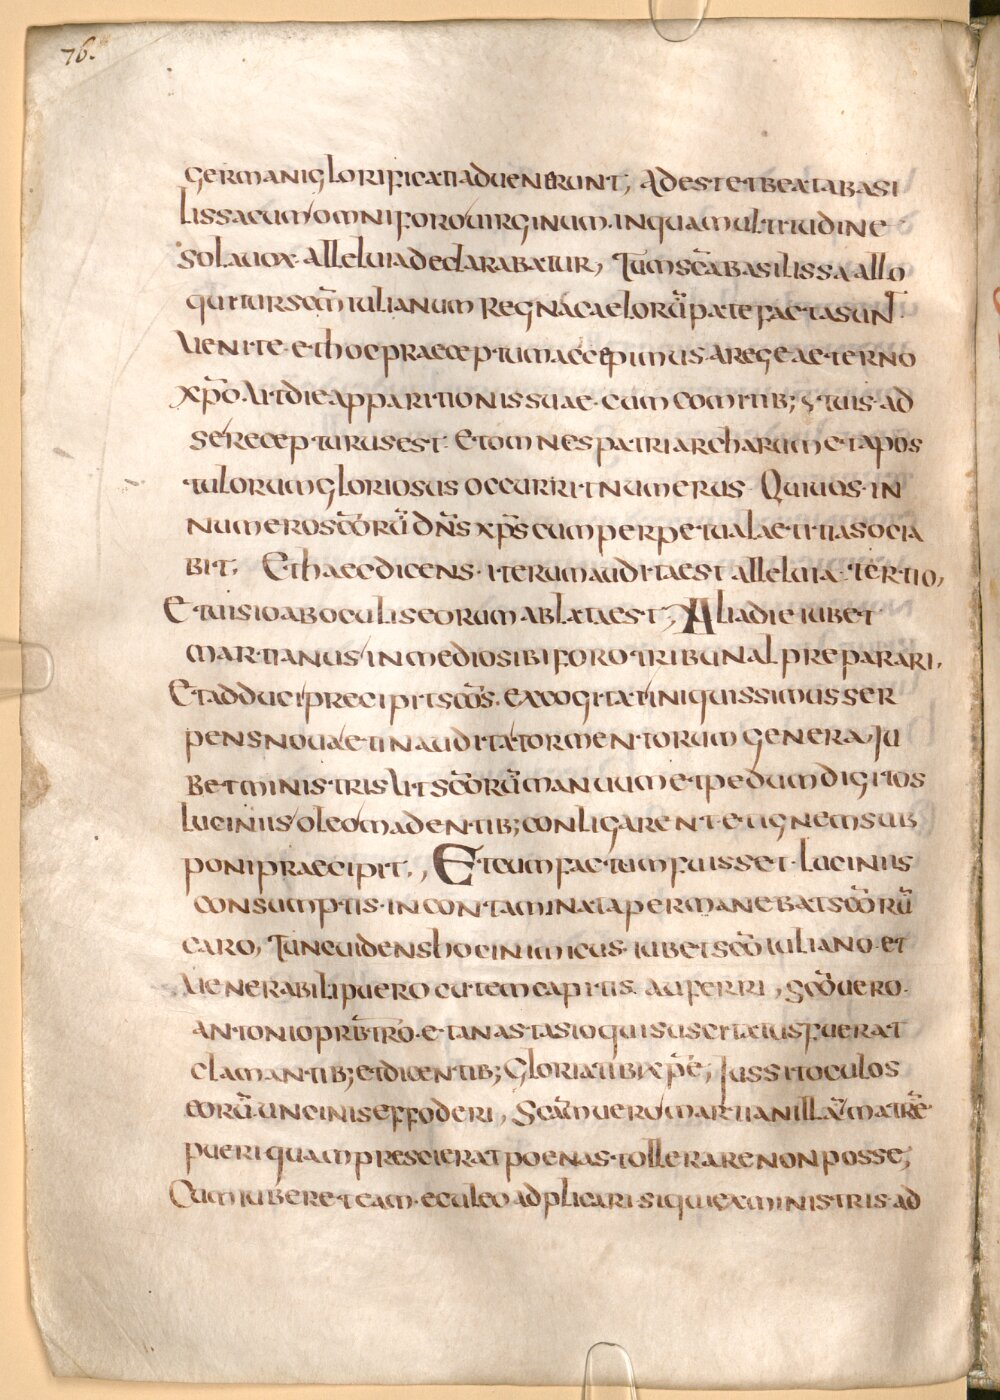 76.
germani glorificati aduenerunt; Adest et beata basi
lissa cum omni foro uirginum. in qua multitudine
sola uox alleluia declarabatur, Tum sc̄a basilissa allo
quitur sc̄m iulianum Regna caelorū patefacta sun̄t
Uenite et hoc praeceptum accepimus a rege aeterno
xp̄o. Ut die apparitionis suae cum comitib; tuis ad
se recepturus est. Et omnes patriarcharum et apos
tulorum gloriosus occurrit numerus Qui uos in
numero sc̄orū dn̄s xp̄s cum perpetua laetitia socia
bit. Et haec dicens. iterum audita est alleluia tertio,
Et uisio ab oculis eorum ablata est; Alia die iubet
martianus in medio sibi foro tribunal preparari,
Et adduci precipit sc̄os. excogitat iniquissimus ser
pens noua et inaudita tormentorum genera, Ju
bet ministris Ut sc̄orū manuum et pedum digitos
luciniis oleo madentib; conligarent et ignem sub
poni praecipit., Et cum factum fuisset. luciniis
consumptis. incontaminata permanebat sc̄orū
caro, Tunc uidens hoc inimicus. iubet sc̄o iuliano et
Uenerabili puero cutem capitis auferri, Sc̄o uero.
antonio prb̄tro. et anastasio qui suscitatus fuerat
clamantib; et dicentib; Gloria tibi xp̄e; Jussit oculos
eorū uncinis effoderi, Sc̄am uero martianillā matrē
pueri quam prescierat poenas tollerare non posse;
Cum iuberet eam. eculeo adplicari siqui ex ministris ad